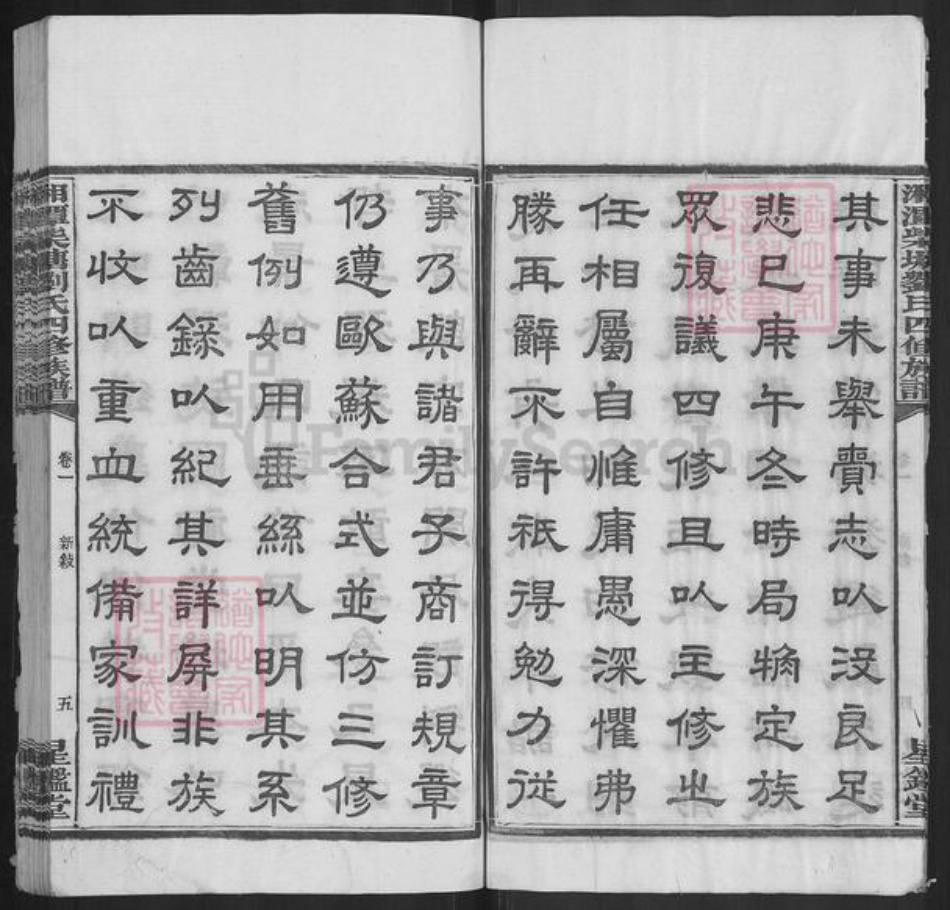 其事未舉賫志以没良足
悲已庚午冬時局粗定族
眾復議四修且以主修之
任相屬自惟庸愚深懼弗
勝再辭不許祇得勉力從
事乃與諸君子商訂規章
仍遵歐蘇合式並仿三修
舊例如用垂絲以明其系
列齒錄以紀其詳屏非族
不收以重血統備家訓禮
劉氏四修族譜
卷一
新敍
五
星鑑堂
FamilySearch